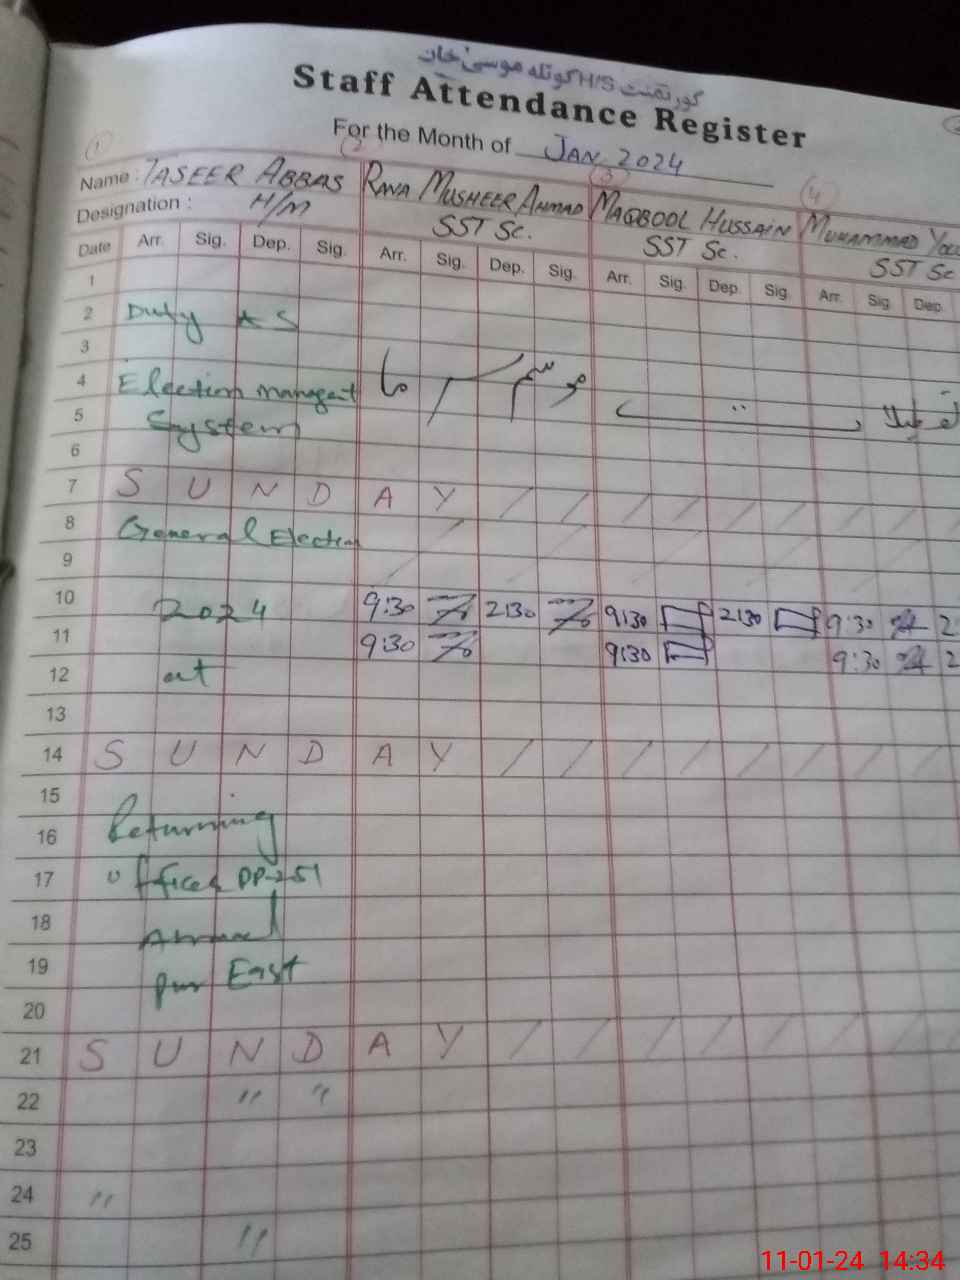 گورنمنٹ H/S کوٹلہ موسیٰ خان
Staff Attendance Register
For the Month of JAN 2024
1 2 3 4
Name : TASEER ABBAS RANA MUSHEER AHMAD MAQBOOL HUSSAIN MUHAMMAD
Designation : H/M SST Sc. SST Sc. SST Sc
Date Arr. Sig. Dep. Sig. Arr. Sig. Dep. Sig. Arr. Sig. Dep. Sig. Arr. Sig. Dep.
1
2 Duty AS
3
4 Election managent موسم سرما
5 System تعطیلات
6
7 S U N D A Y / / / / / / / /
8 General Election
9
10 2024 9:30 2:30 9:30 2:30 9:30 2
11 9:30 9:30 9:30 2
12 at
13
14 S U N D A Y / / / / / / / /
15
16 Returning
17 Officer PP-251
18 Ahmad
19 pur East
20
21 S U N D A Y / / / / / / / /
22 " "
23
24 "
25 "
11-01-24 14:34